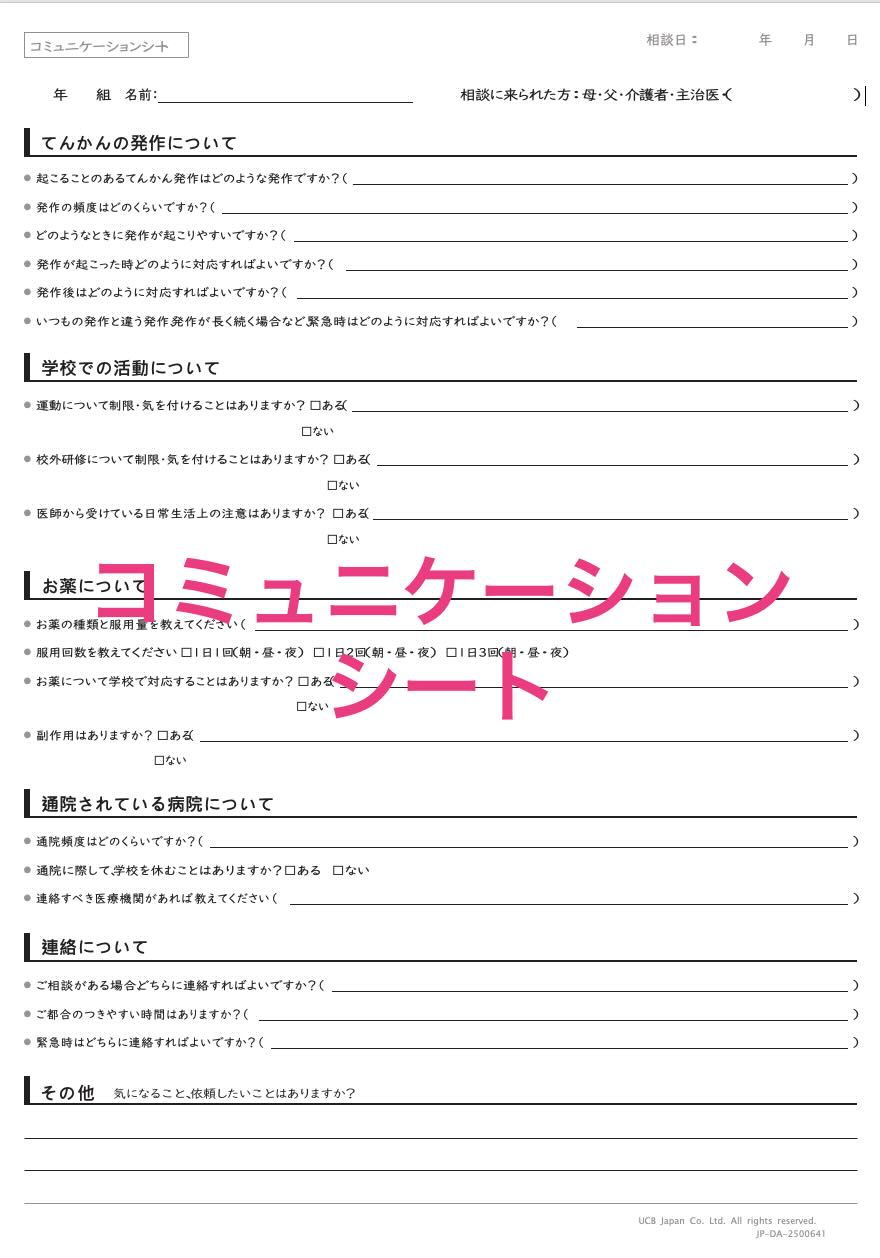 コミュニケーションシート
相談日： 年 月 日
年 組 名前：
相談に来られた方：母・父・介護者・主治医・( )
てんかんの発作について
●起こることのあるてんかん発作はどのような発作ですか？( )
●発作の頻度はどのくらいですか？( )
●どのようなときに発作が起こりやすいですか？( )
●発作が起こった時、どのように対応すればよいですか？( )
●発作後はどのように対応すればよいですか？( )
●いつもの発作と違う発作、発作が長く続く場合など、緊急時はどのように対応すればよいですか？( )
学校での活動について
●運動について制限・気を付けることはありますか？ □ある( )
□ない
●校外研修について制限・気を付けることはありますか？ □ある( )
□ない
●医師から受けている日常生活上の注意はありますか？ □ある( )
□ない
コミュニケーション
シート
お薬について
●お薬の種類と服用量を教えてください( )
●服用回数を教えてください □1日1回(朝・昼・夜) □1日2回(朝・昼・夜) □1日3回(朝・昼・夜)
●お薬について学校で対応することはありますか？ □ある( )
□ない
●副作用はありますか？ □ある( )
□ない
通院されている病院について
●通院頻度はどのくらいですか？( )
●通院に際して、学校を休むことはありますか？ □ある □ない
●連絡すべき医療機関があれば教えてください( )
連絡について
●ご相談がある場合、どちらに連絡すればよいですか？( )
●ご都合のつきやすい時間はありますか？( )
●緊急時はどちらに連絡すればよいですか？( )
その他 気になること、依頼したいことはありますか？
UCB Japan Co. Ltd. All rights reserved.
JP-DA-2500641